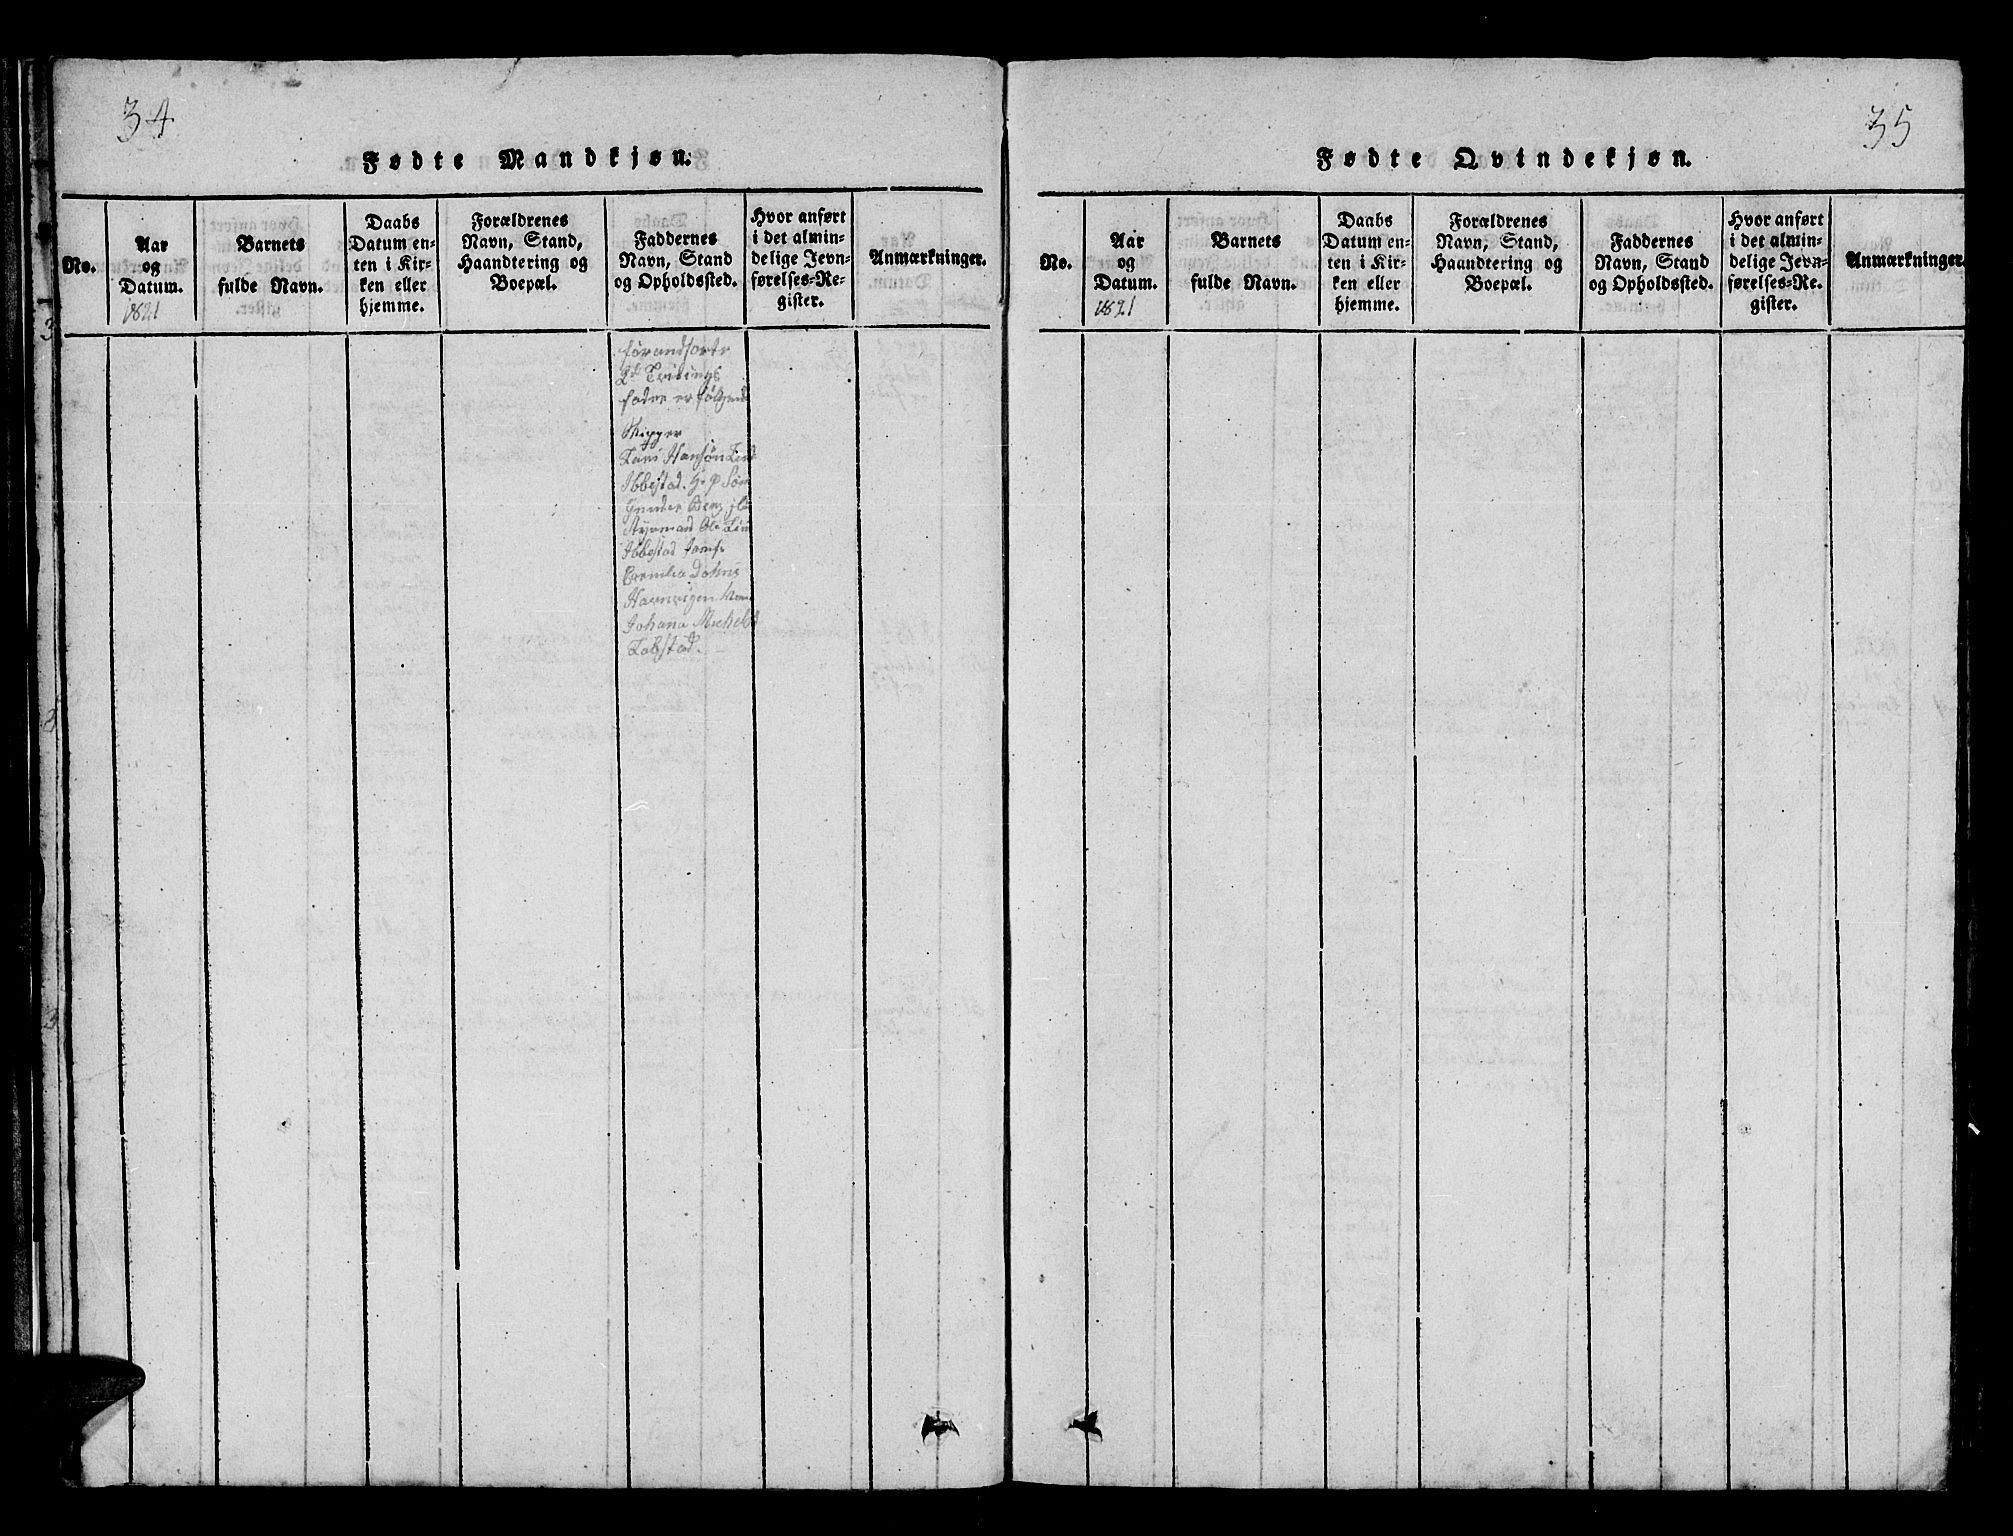 34
Fødte Mandkjøn.
No.
Aar
og
Datum.
1821
Barnets
fulde Navn.
Daabs
Datum en-
ten i Kir-
ken eller
hjemme.
Forældrenes
Navn, Stand,
Haandtering og
Boepæl.
Faddernes
Navn, Stand
og Opholdssted.
Hvor anført
i det almin-
delige Jevn-
førelses-Re-
gister.
Anmærkninger.
2d Tvilings
fadre er følgende
Skipper
Lars Hansøn
Ibbestad.
Gunder
Styrmand Ole
Ibbestad Jomfr
Johana
35
Fødte Qvindekjøn.
No.
Aar
og
Datum.
1821
Barnets
fulde Navn.
Daabs
Datum en-
ten i Kir-
ken eller
hjemme.
Forældrenes
Navn, Stand,
Haandtering og
Boepæl.
Faddernes
Navn, Stand
og Opholdssted.
Hvor anført
i det almin-
delige Jevn-
førelses-Re-
gister.
Anmærkninger.